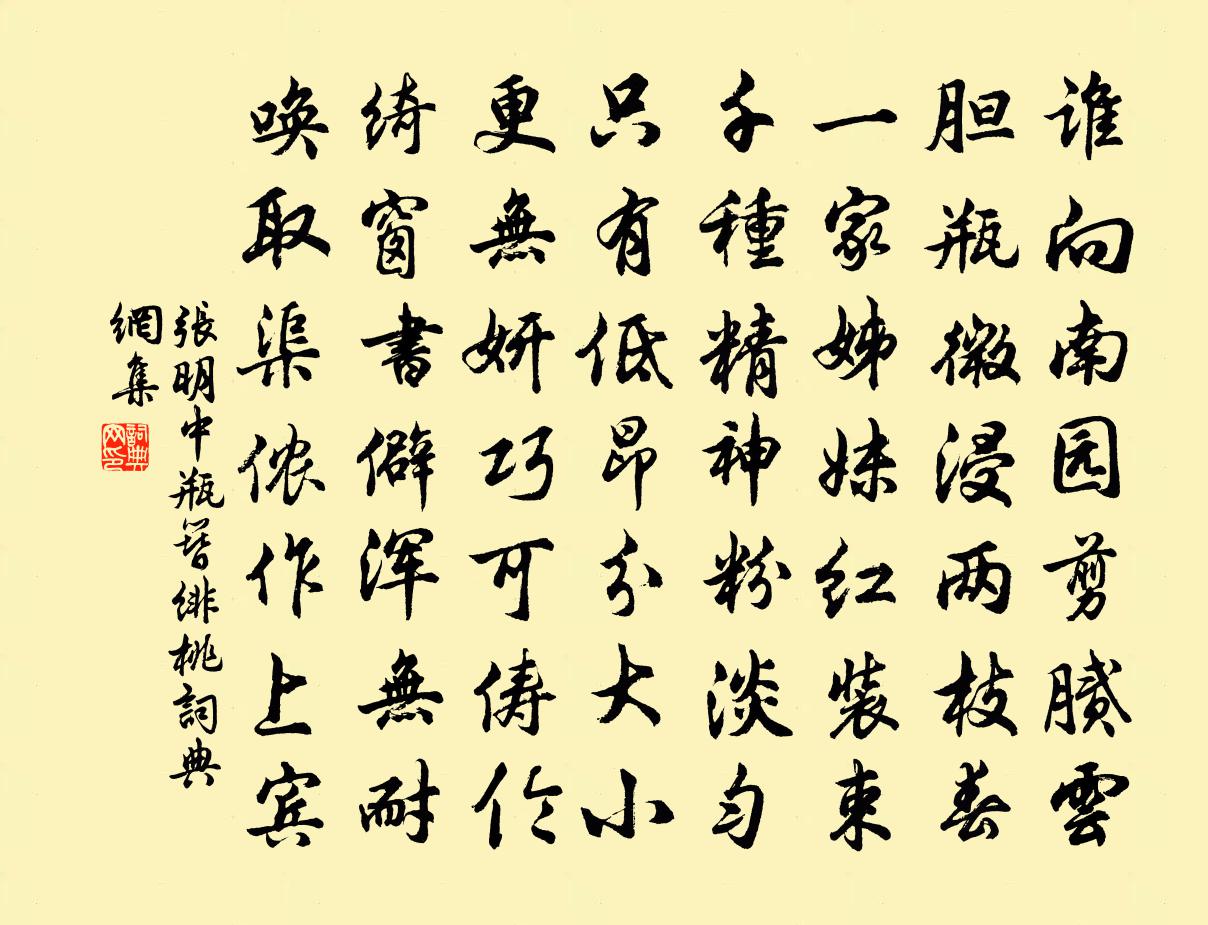 谁向南园剪膩雲
胆瓶微浸两枝春
一家姊妹红装束
千種精神粉淡匀
只有低昂分大小
更無妍巧可俦伦
绮窗書僻浑無耐
唤取渠侬作上宾
張明中瓶簪绯桃詞典
網集
詞典
网印